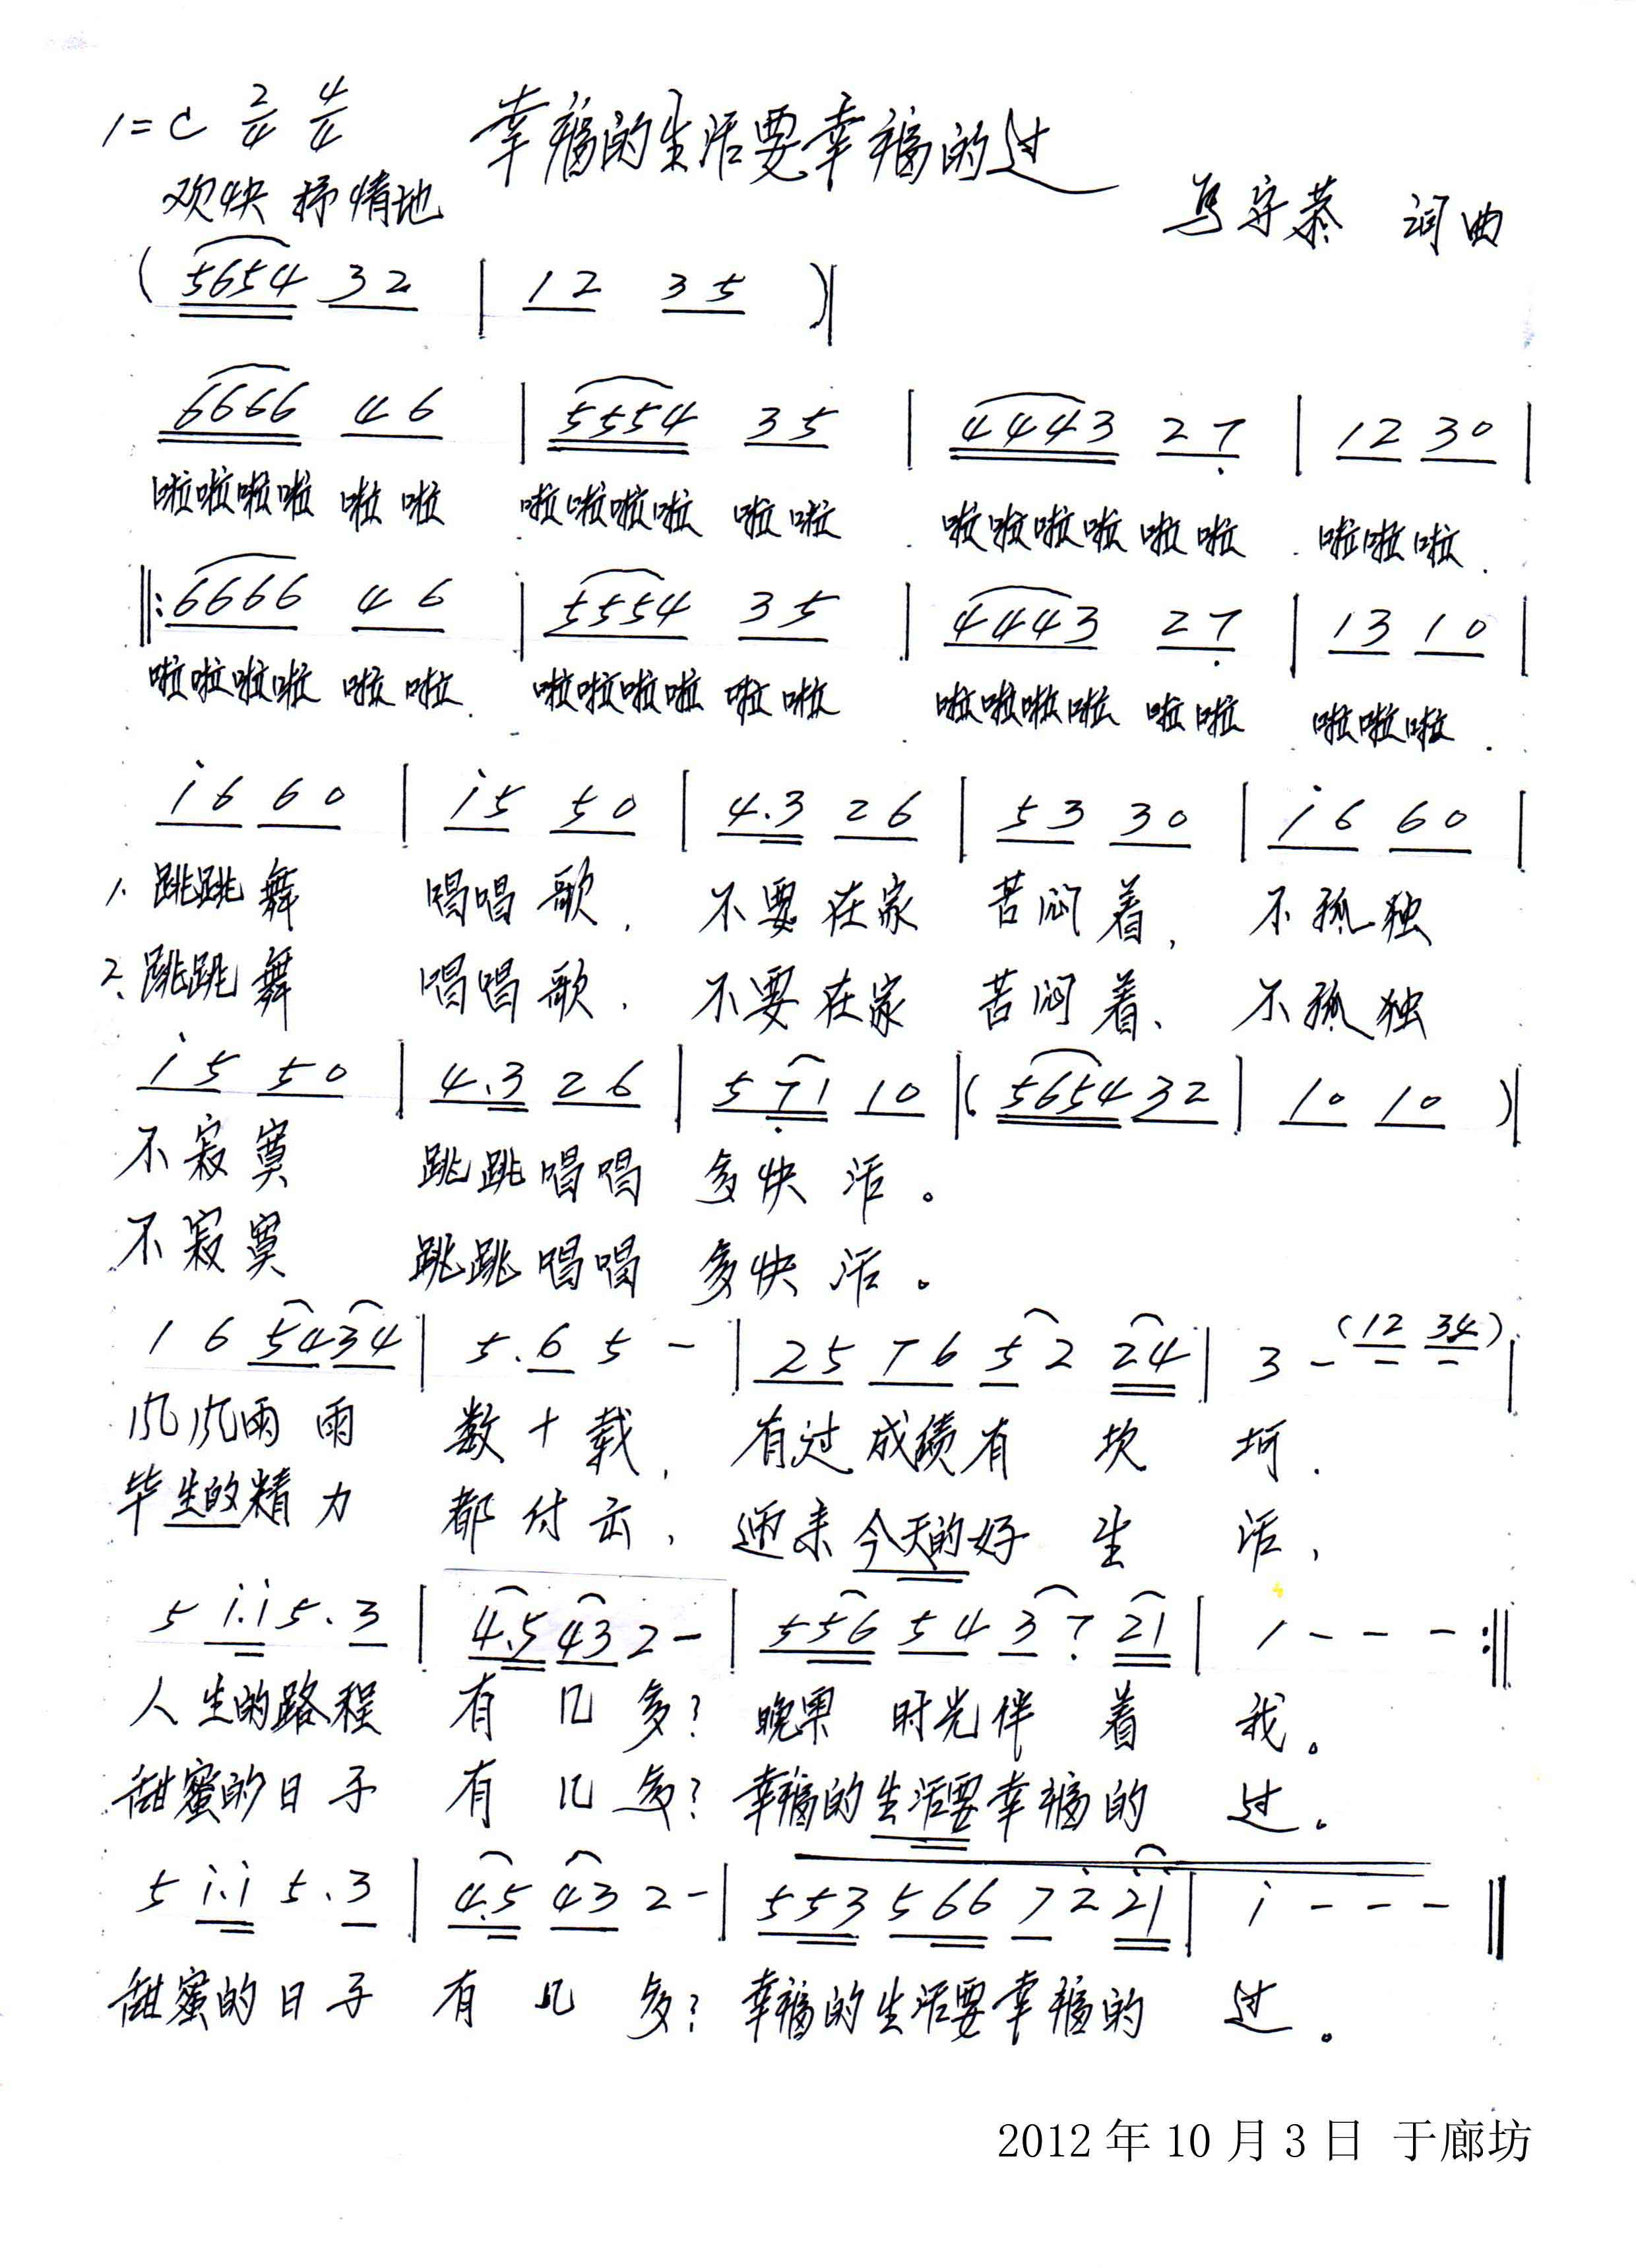 1=C 2/4 4/4 幸福的生活要幸福的过
欢快 抒情地
马守恭 词曲
( 5654 32 | 12 35 )|
6666 46 | 5554 35 | 4443 27̣ | 12 30 |
啦啦啦啦 啦啦 啦啦啦啦 啦啦 啦啦啦啦 啦啦 啦啦啦.
‖: 6666 46 | 5554 35 | 4443 27̣ | 13 10 |
啦啦啦啦 啦啦 啦啦啦啦 啦啦 啦啦啦啦 啦啦 啦啦啦.
i̇6 60 | i̇5 50 | 4.3 26 | 53 30 | i̇6 60 |
1. 跳跳舞 唱唱歌, 不要在家 苦闷着, 不孤独
2. 跳跳舞 唱唱歌, 不要在家 苦闷着、 不孤独
i̇5 50 | 4.3 26 | 57̣1 10 |( 5654 32 | 10 10 )|
不寂寞 跳跳唱唱 多快活。
不寂寞 跳跳唱唱 多快活。
1 6 54 34 | 5. 6 5 - | 25 76 5 2 24 | 3 - (12 34) |
风风雨雨 数十载, 有过成绩有坎坷.
毕生的精力 都付出, 迎来今天的好生活,
5 i̇.i̇ 5. 3 | 4.5 43 2 - | 556 54 3 7̣ 21 | 1 - - - :‖
人生的路程 有几多? 晚果时光伴着我。
甜蜜的日子 有几多? 幸福的生活要幸福的过。
5 i̇.i̇ 5. 3 | 4.5 43 2 - | 553 566 7 2̇ 2̇i̇ | i̇ - - - ‖
甜蜜的日子 有几多? 幸福的生活要幸福的过。
2012年10月3日 于廊坊